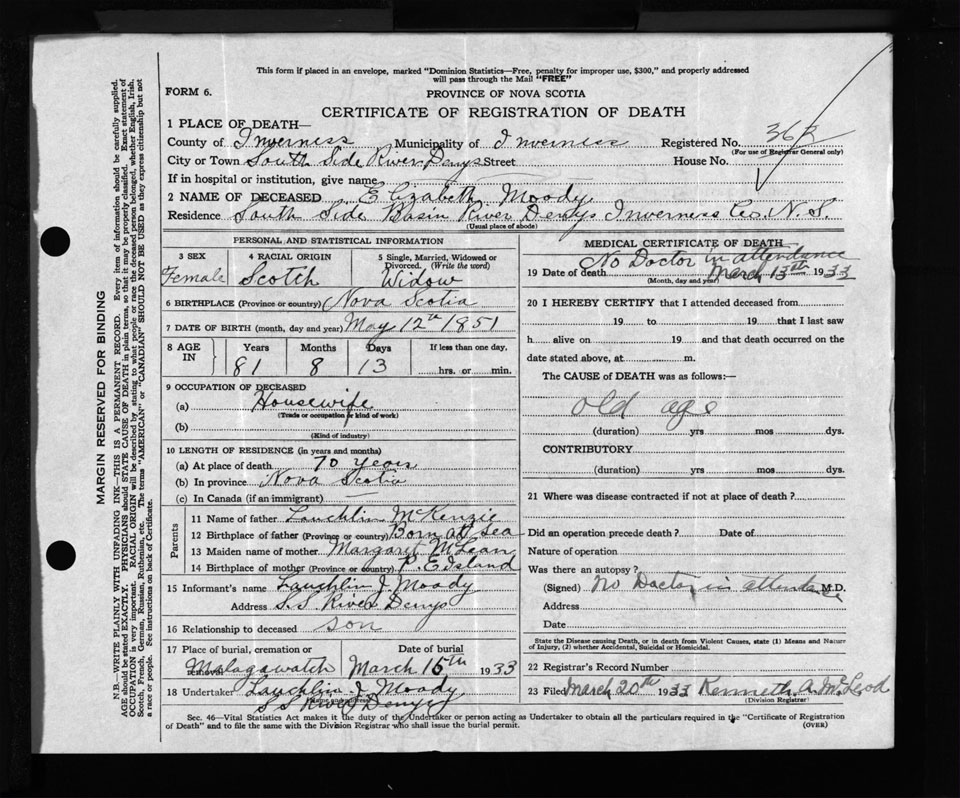 This form if placed in an envelope, marked "Dominion Statistics—Free, penalty for improper use, $300," and properly addressed
will pass through the Mail "FREE"
FORM 6.
PROVINCE OF NOVA SCOTIA
CERTIFICATE OF REGISTRATION OF DEATH
1 PLACE OF DEATH—
County of Inverness Municipality of Inverness Registered No.
(For use of Registrar General only)
City or Town South Side River Denys Street House No.
If in hospital or institution, give name
2 NAME OF DECEASED Elizabeth Moody
Residence South Side Basin River Denys Inverness Co. N. S.
(Usual place of abode)
PERSONAL AND STATISTICAL INFORMATION
3 SEX Female
4 RACIAL ORIGIN Scotch
5 Single, Married, Widowed or Divorced. (Write the word) Widow
6 BIRTHPLACE (Province or country) Nova Scotia
7 DATE OF BIRTH (month, day and year) May 12th 1851
8 AGE IN Years Months Days If less than one day.
81 8 13 hrs. or min.
9 OCCUPATION OF DECEASED
(a) Housewife
(Trade or occupation or kind of work)
(b)
(Kind of industry)
10 LENGTH OF RESIDENCE (in years and months)
(a) At place of death 70 years
(b) In province Nova Scotia
(c) In Canada (if an immigrant) —
Parents
11 Name of father Lauchlin McKenzie
12 Birthplace of father (Province or country) Born at Sea
13 Maiden name of mother Margaret McLean
14 Birthplace of mother (Province or country) P. E Island
15 Informant's name Lauchlin J. Moody
Address S.S River Denys
16 Relationship to deceased son
17 Place of burial, cremation or removal Date of burial
Malagawatch March 15th 1933
18 Undertaker Lauchlin J. Moody
S S River Denys
MEDICAL CERTIFICATE OF DEATH
No Doctor in attendance
19 Date of death March 13th 1933
(Month, day and year)
20 I HEREBY CERTIFY that I attended deceased from
19 to 19 that I last saw
h alive on 19 and that death occurred on the
date stated above, at m.
The CAUSE of DEATH was as follows:—
old age
(duration) yrs mos dys.
CONTRIBUTORY
(duration) yrs mos dys.
21 Where was disease contracted if not at place of death?
Did an operation precede death? Date of
Nature of operation
Was there an autopsy?
(Signed) No Doctor in attendance M.D.
Address
Date
State the Disease causing Death, or in death from Violent Causes, state (1) Means and Nature
of Injury, (2) whether Accidental, Suicidal or Homicidal.
22 Registrar's Record Number
23 Filed March 20th 1933 Kenneth A. McLeod
(Division Registrar)
Sec. 46—Vital Statistics Act makes it the duty of the Undertaker or person acting as Undertaker to obtain all the particulars required in the "Certificate of Registration
of Death" and to file the same with the Division Registrar who shall issue the burial permit.
(OVER)
MARGIN RESERVED FOR BINDING
N.B. WRITE PLAINLY WITH UNFADING INK—THIS IS A PERMANENT RECORD. Every item of information should be carefully supplied.
AGE should be stated EXACTLY. PHYSICIANS should STATE CAUSE OF DEATH in plain terms, so that it may be properly classified. Exact statement of
OCCUPATION is very important. RACIAL ORIGIN will be described by stating to what people or race the deceased person belonged, whether English, Irish,
Scotch, French, German, Russian, Ruthenian, etc. The terms "AMERICAN" or "CANADIAN" SHOULD NOT BE USED as they express citizenship but not
a race or people. See instructions on back of Certificate.